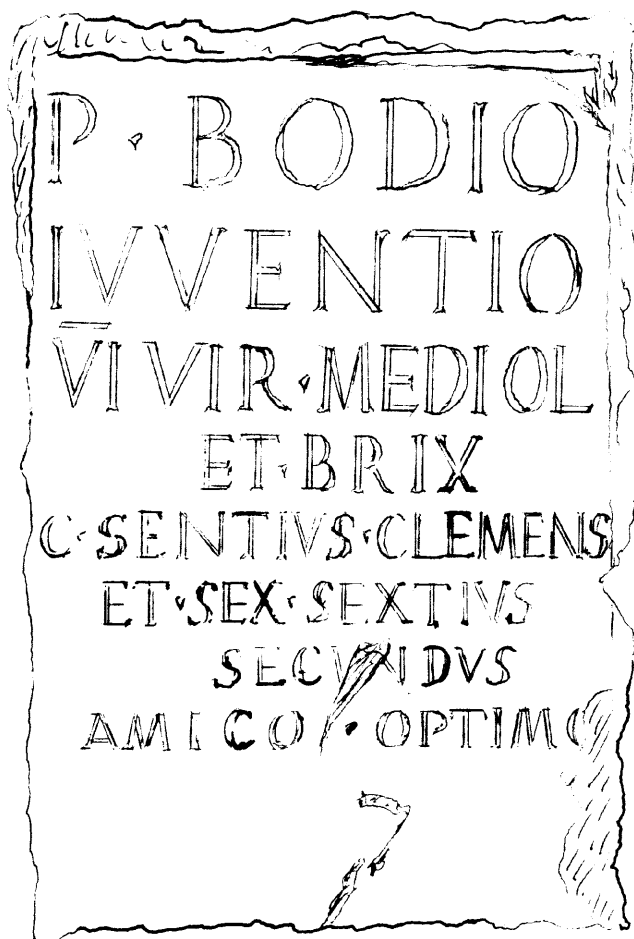 P · BODIO
IVVENTIO
V̅I VIR · MEDIOL
ET · BRIX
C · SENTIVS · CLEMENS
ET · SEX · SEXTIVS
SECVNDVS
AMICO · OPTIMO